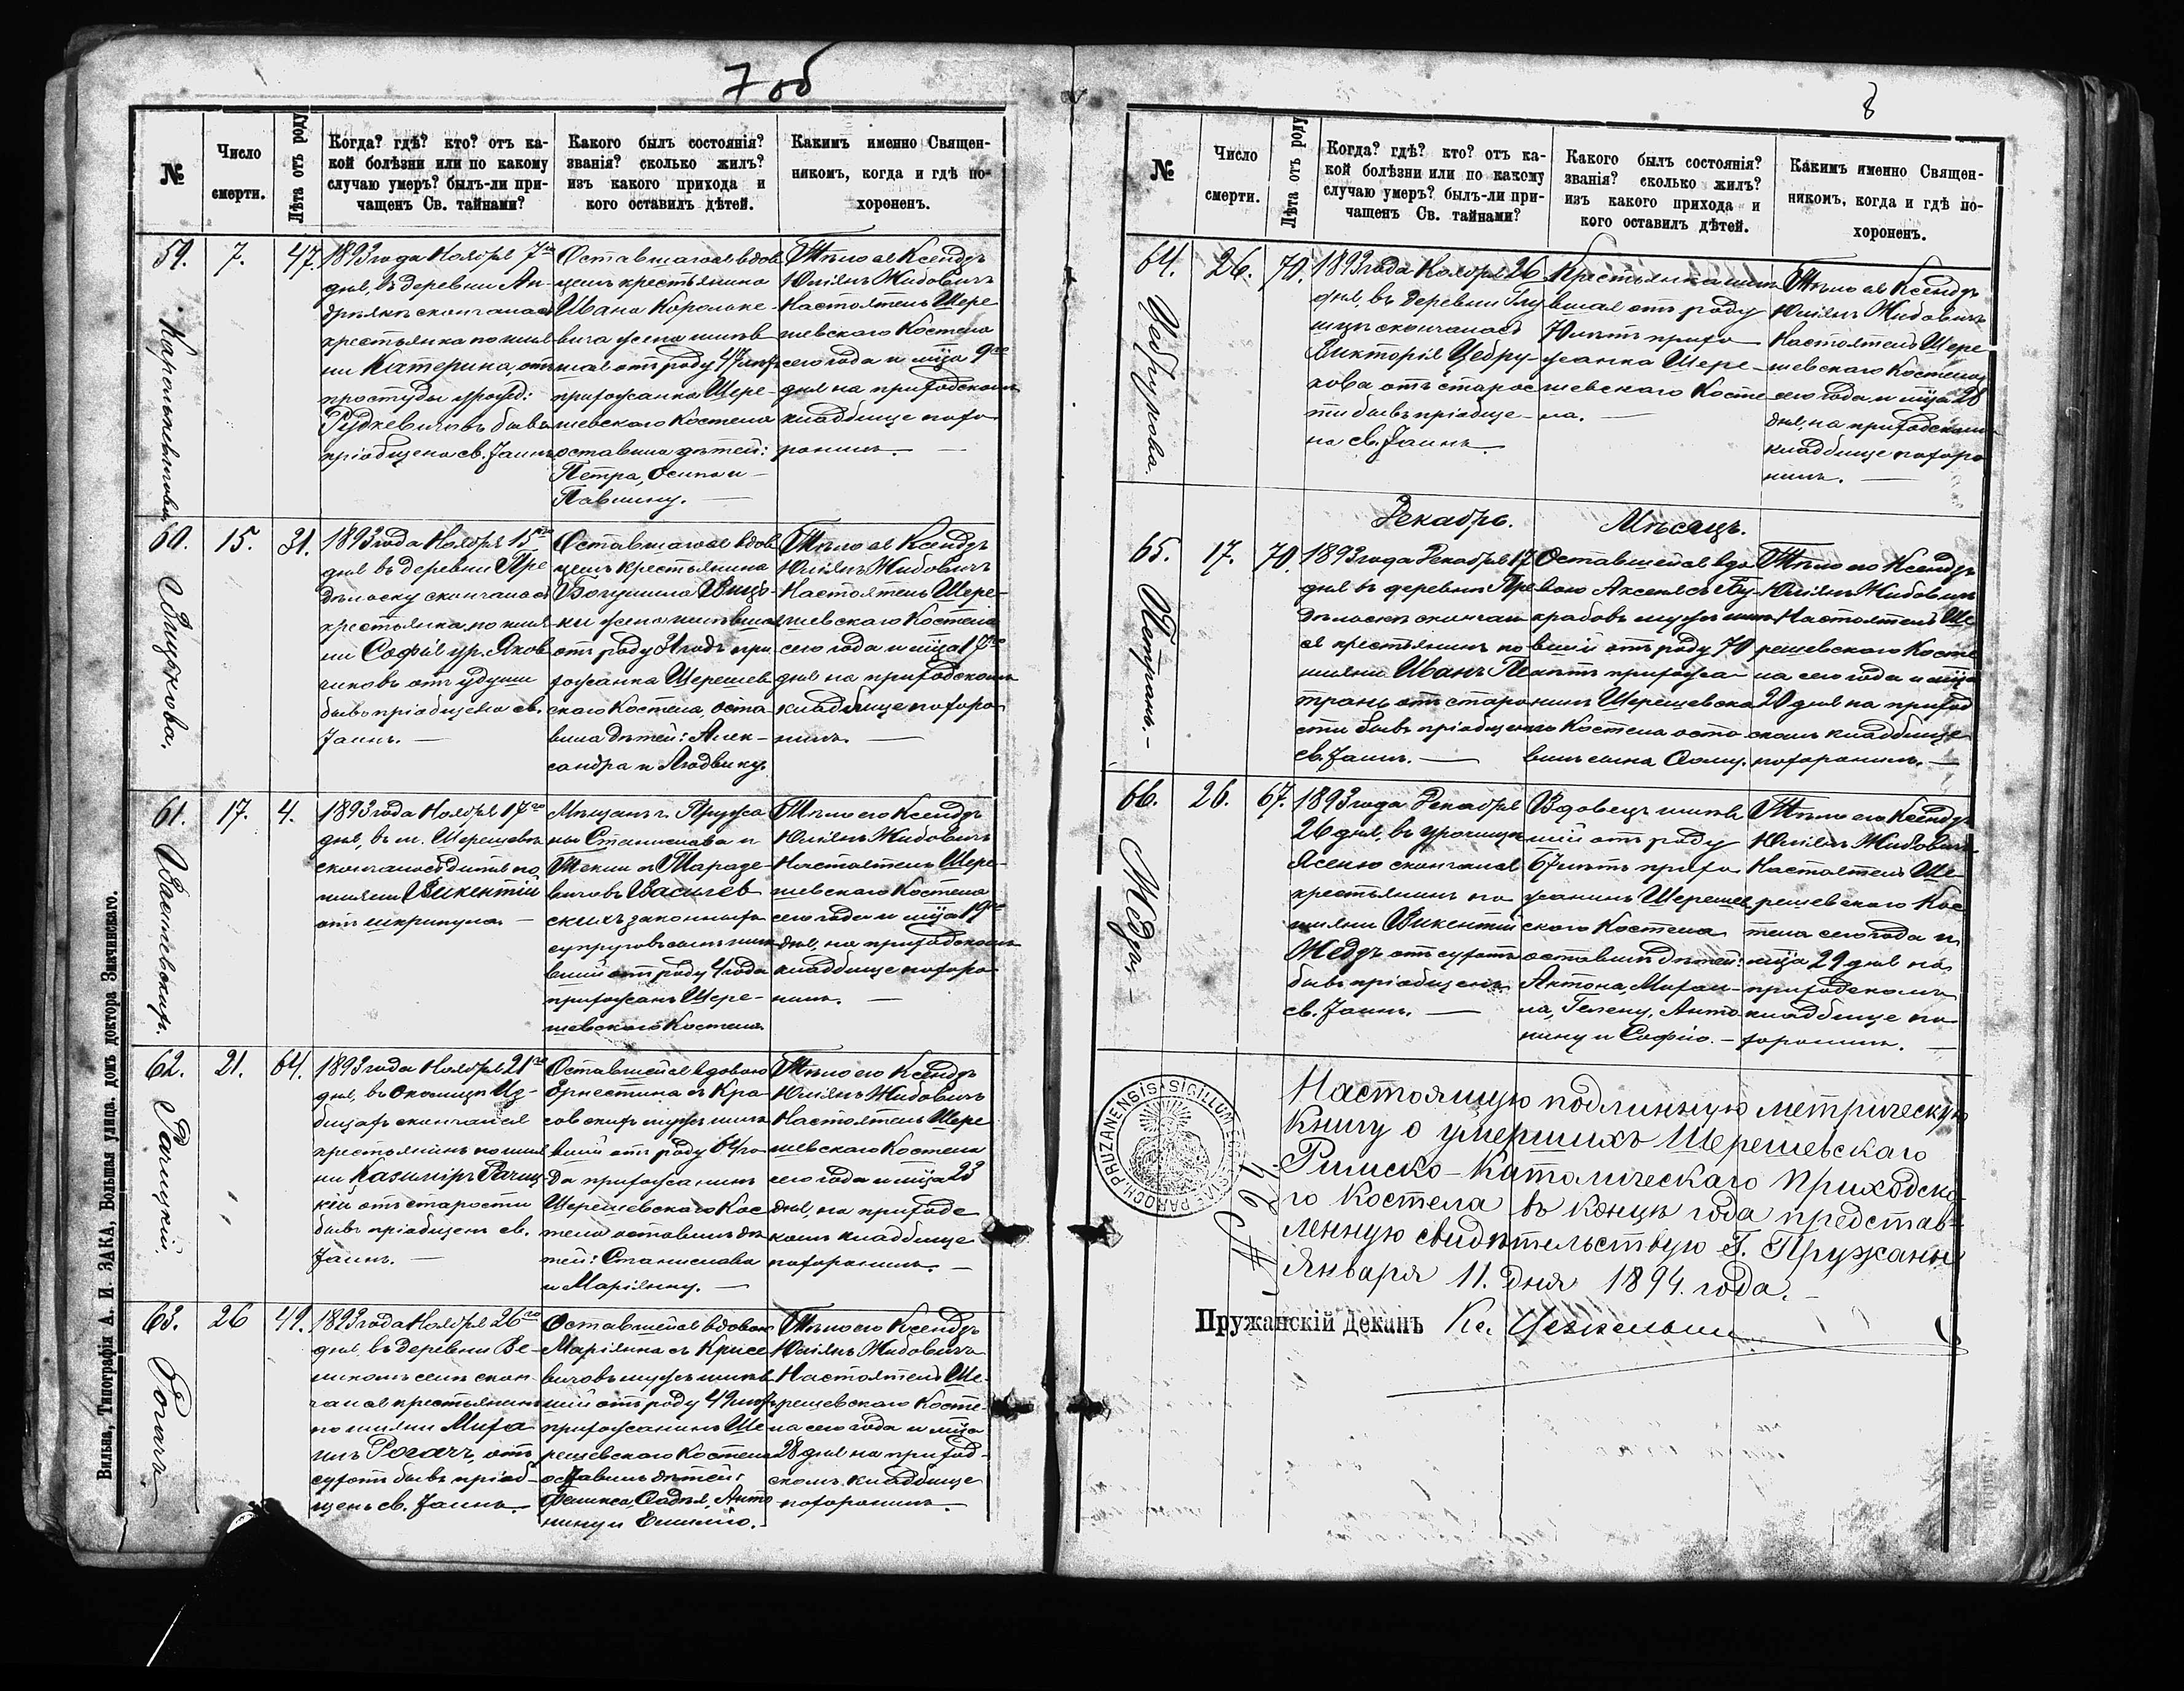 7 об
№
Число
смерти.
Лѣта отъ роду
Когда? гдѣ? кто? отъ ка-
кой болѣзни или по какому
случаю умеръ? былъ-ли при-
чащенъ Св. тайнами?
Какого былъ состоянія?
званія? сколько жилъ?
изъ какого прихода и
кого оставилъ дѣтей.
Какимъ именно Священ-
никомъ, когда и гдѣ по-
хороненъ.
59.
7.
47.
1893 года Ноября 7го
дня, въ деревни Ан-
скончалась
крестьянка по имя-
ни Катерина, отъ
простуды урожд:
Рудкевичовъ бывъ
пріобщена св. Таинъ
Оставшагося вдов
цемъ крестьянина
Ивана Корольке-
вича жена жив
шая отъ роду 47 лѣтъ
прихожанка Шере-
шевскаго Костела
оставила дѣтей:
Петра, Осипа и
Павлину.
Тѣло ея Ксендзъ
Юліянъ Жидовичъ
Настоятель Шере
шевскаго Костела
сего года и мѣца 9го
дня на приходскомъ
кладбище похо
ронилъ.
60.
Вицькова.
15.
31.
1893 года Ноября 15го
дня въ деревни Пре
дѣльску скончалась
крестьянка, по имя
ни Софія ур. Яков
чиковъ отъ удуши
бывъ пріобщена св.
Таинъ.
Оставшагося вдов
цемъ крестьянина
Богумила Виць-
ки жена жившая
отъ роду 31 годъ при
хожанка Шерешев
скаго Костела, оста
вила дѣтей: Алек-
сандра и Людвику.
Тѣло ея Ксендзъ
Юліянъ Жидовичъ
Настоятель Шере-
шевскаго Костела
сего года и мѣца 17го
дня на приходскомъ
кладбище похоро
нилъ.
61.
17.
4.
1893 года Ноября 17го
дня, въ м. Шерешевѣ
скончалось дитя по
имяни Викентій
отъ шкрипула.
Мѣщанъ г. Пружа
ны Станислава и
Текли съ
Василев
скихъ законныхъ
супруговъ сынъ жив
шій отъ роду 4 года
прихожанъ Шере-
шевскаго Костела.
Тѣло его Ксендзъ
Юліянъ Жидовичъ
Настоятель Шере-
шевскаго Костела
сего года и мѣца 19го
дня, на приходскомъ
кладбище похоро
нилъ.
62.
Рачицкій.
21.
64.
1893 года Ноября 21го
дня, въ околицѣ Из-
бицахъ скончался
крестьянинъ по имя
ни Казиміръ Рачиц
кій отъ старости
бывъ пріобщенъ св.
Таинъ.
Оставшейся вдовою
Эрнестина съ Кра-
совскихъ мужъ жив
шій отъ роду 64 го
да прихожанинъ
Шерешевскаго Кос
тела оставилъ дѣ
тей: Станислава
и Маріянну.
Тѣло его Ксендзъ
Юліянъ Жидовичъ
Настоятель Шере
шевскаго Костела
сего года и мѣца 23
дня, на приходс
комъ кладбище
похоронилъ.
63.
Рогачъ.
26
49.
1893 года Ноября 26го
дня, въ деревни Ве-
ликомъ селѣ скон-
чался крестьянинъ
по имяни Миха
илъ Рогачъ, отъ
сухотъ бывъ пріоб-
щенъ св. Таинъ.
Оставшейся вдовою
Маріянна съ Крисе
вичовъ мужъ жив
шій отъ роду 49 лѣтъ
прихожанинъ Ше
решевскаго Костела
оставилъ дѣтей:
Феликса, Анто
нину и Емилію.
Тѣло его Ксендзъ
Юліянъ Жидовичъ
Настоятель Ше-
решевскаго Косте-
ла сего года и мѣца
28 дня на приход-
скомъ кладбище
похоронилъ.
Вильна, Типографія А. И. ЗАКА, Большая улица. домъ доктора Значинскаго.
8
№
Число
смерти.
Лѣта отъ роду
Когда? гдѣ? кто? отъ ка-
кой болѣзни или по какому
случаю умеръ? былъ-ли при-
чащенъ Св. тайнами?
Какого былъ состоянія?
званія? сколько жилъ?
изъ какого прихода и
кого оставилъ дѣтей.
Какимъ именно Священ-
никомъ, когда и гдѣ по-
хороненъ.
64.
26.
70.
1893 года Ноября 26
дня, въ деревни
скончалась
Викторія Цебру-
кова отъ старос
ти бывъ пріобще-
на св. Таинъ.
Крестьянка жив
шая отъ роду
70 лѣтъ прихо
жанка Шере-
шевскаго Косте
ла.
Тѣло ея Ксендзъ
Юліянъ Жидовичъ
Настоятель Шере
шевскаго Костела
сего года и мѣца 28
дня, на приходскомъ
кладбище похоро
нилъ.
Декабрь. Мѣсяцъ.
65.
Петранъ.
17.
70.
1893 года Декабря 17
дня въ деревни Пре
дѣльскѣ скончал
ся крестьянинъ по
имяни Иванъ Пе
транъ отъ старо
сти бывъ пріобщенъ
св. Таинъ.
Оставшейся вдо
вою Аксенія съ Бу-
краровъ мужъ жив
шій отъ роду 70
лѣтъ прихожа
нинъ Шерешевска
го Костела оста
вилъ сына Фому.
Тѣло его Ксендзъ
Юліянъ Жидовичъ
Настоятель Ше
решевскаго Косте
ла сего года и мѣца
20 дня на приход
скомъ кладбище
похоронилъ.
66.
Жедзь.
26.
67.
1893 года Декабря
26 дня, въ урочищѣ
Ясеню скончался
крестьянинъ по
имяни Викентій
Жедзь отъ сухотъ
бывъ пріобщенъ
св. Таинъ.
Вдовецъ жив
шій отъ роду
67 лѣтъ прихо
жанинъ Шерешев
скаго Костела
оставилъ дѣтей:
Антона, Михаи-
ла, Гелену, Анто
нину и Софію.
Тѣло его Ксендзъ
Юліянъ Жидовичъ
Настоятель Ше
решевскаго Кос
тела сего года и
мѣца 29 дня на
приходскомъ
кладбище по
хоронилъ.
Настоящую подлинную метрическую
книгу о умершихъ Шерешевскаго
Римско-Католическаго Приходска-
го Костела въ концѣ года представ-
ленную свидѣтельствую Г. Пружаны
Января 11. дня 1894. года.
Пружанскій Деканъ Кс.